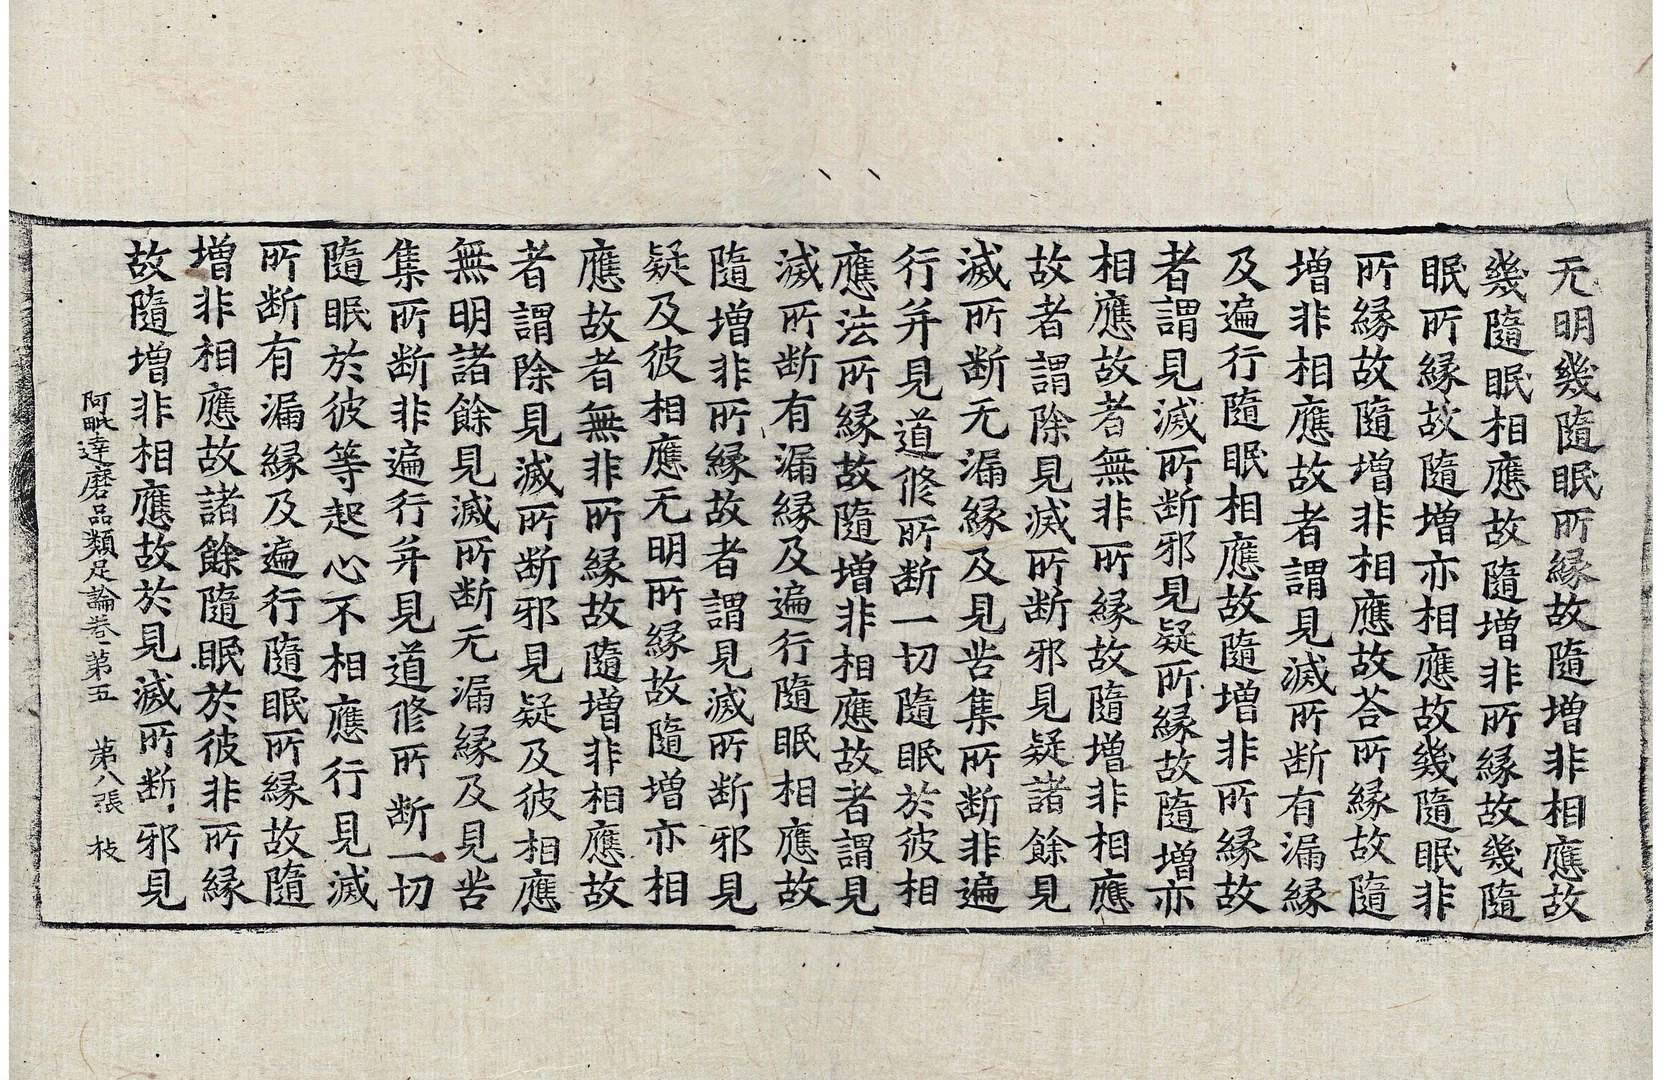 无明幾隨眠所縁故隨増非相應故
幾隨眠相應故隨増非所縁故幾隨
眠所縁故隨増亦相應故幾隨眠非
所縁故隨増非相應故荅所縁故隨
増非相應故者謂見滅所断有漏縁
及遍行隨眠相應故隨増非所縁故
者謂見滅所断邪見疑所縁故隨増亦
相應故者無非所縁故隨増非相應
故者謂除見滅所断邪見疑諸餘見
滅所断无漏縁及見苦集所断非遍
行并見道修所断一切隨眠於彼相
應法所縁故隨増非相應故者謂見
滅所断有漏縁及遍行隨眠相應故
隨増非所縁故者謂見滅所断邪見
疑及彼相應无明所縁故隨増亦相
應故者無非所縁故隨増非相應故
者謂除見滅所断邪見疑及彼相應
無明諸餘見滅所断无漏縁及見苦
集所断非遍行并見道修所断一切
隨眠於彼等起心不相應行見滅
所断有漏縁及遍行隨眠所縁故隨
増非相應故諸餘隨眠於彼非所縁
故隨増非相應故於見滅所断邪見
阿毗達磨品類足論卷第五 第八張 枝